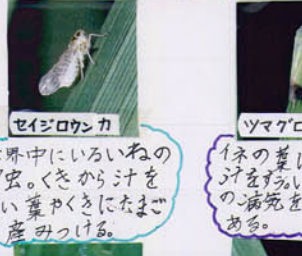 セイジロウンカ
界中にいるいねの
虫。くきから汁を
い葉やくきにたまご
産みつける。
ツマグロ
イネの葉
汁をすう。い
の病気を
ある。